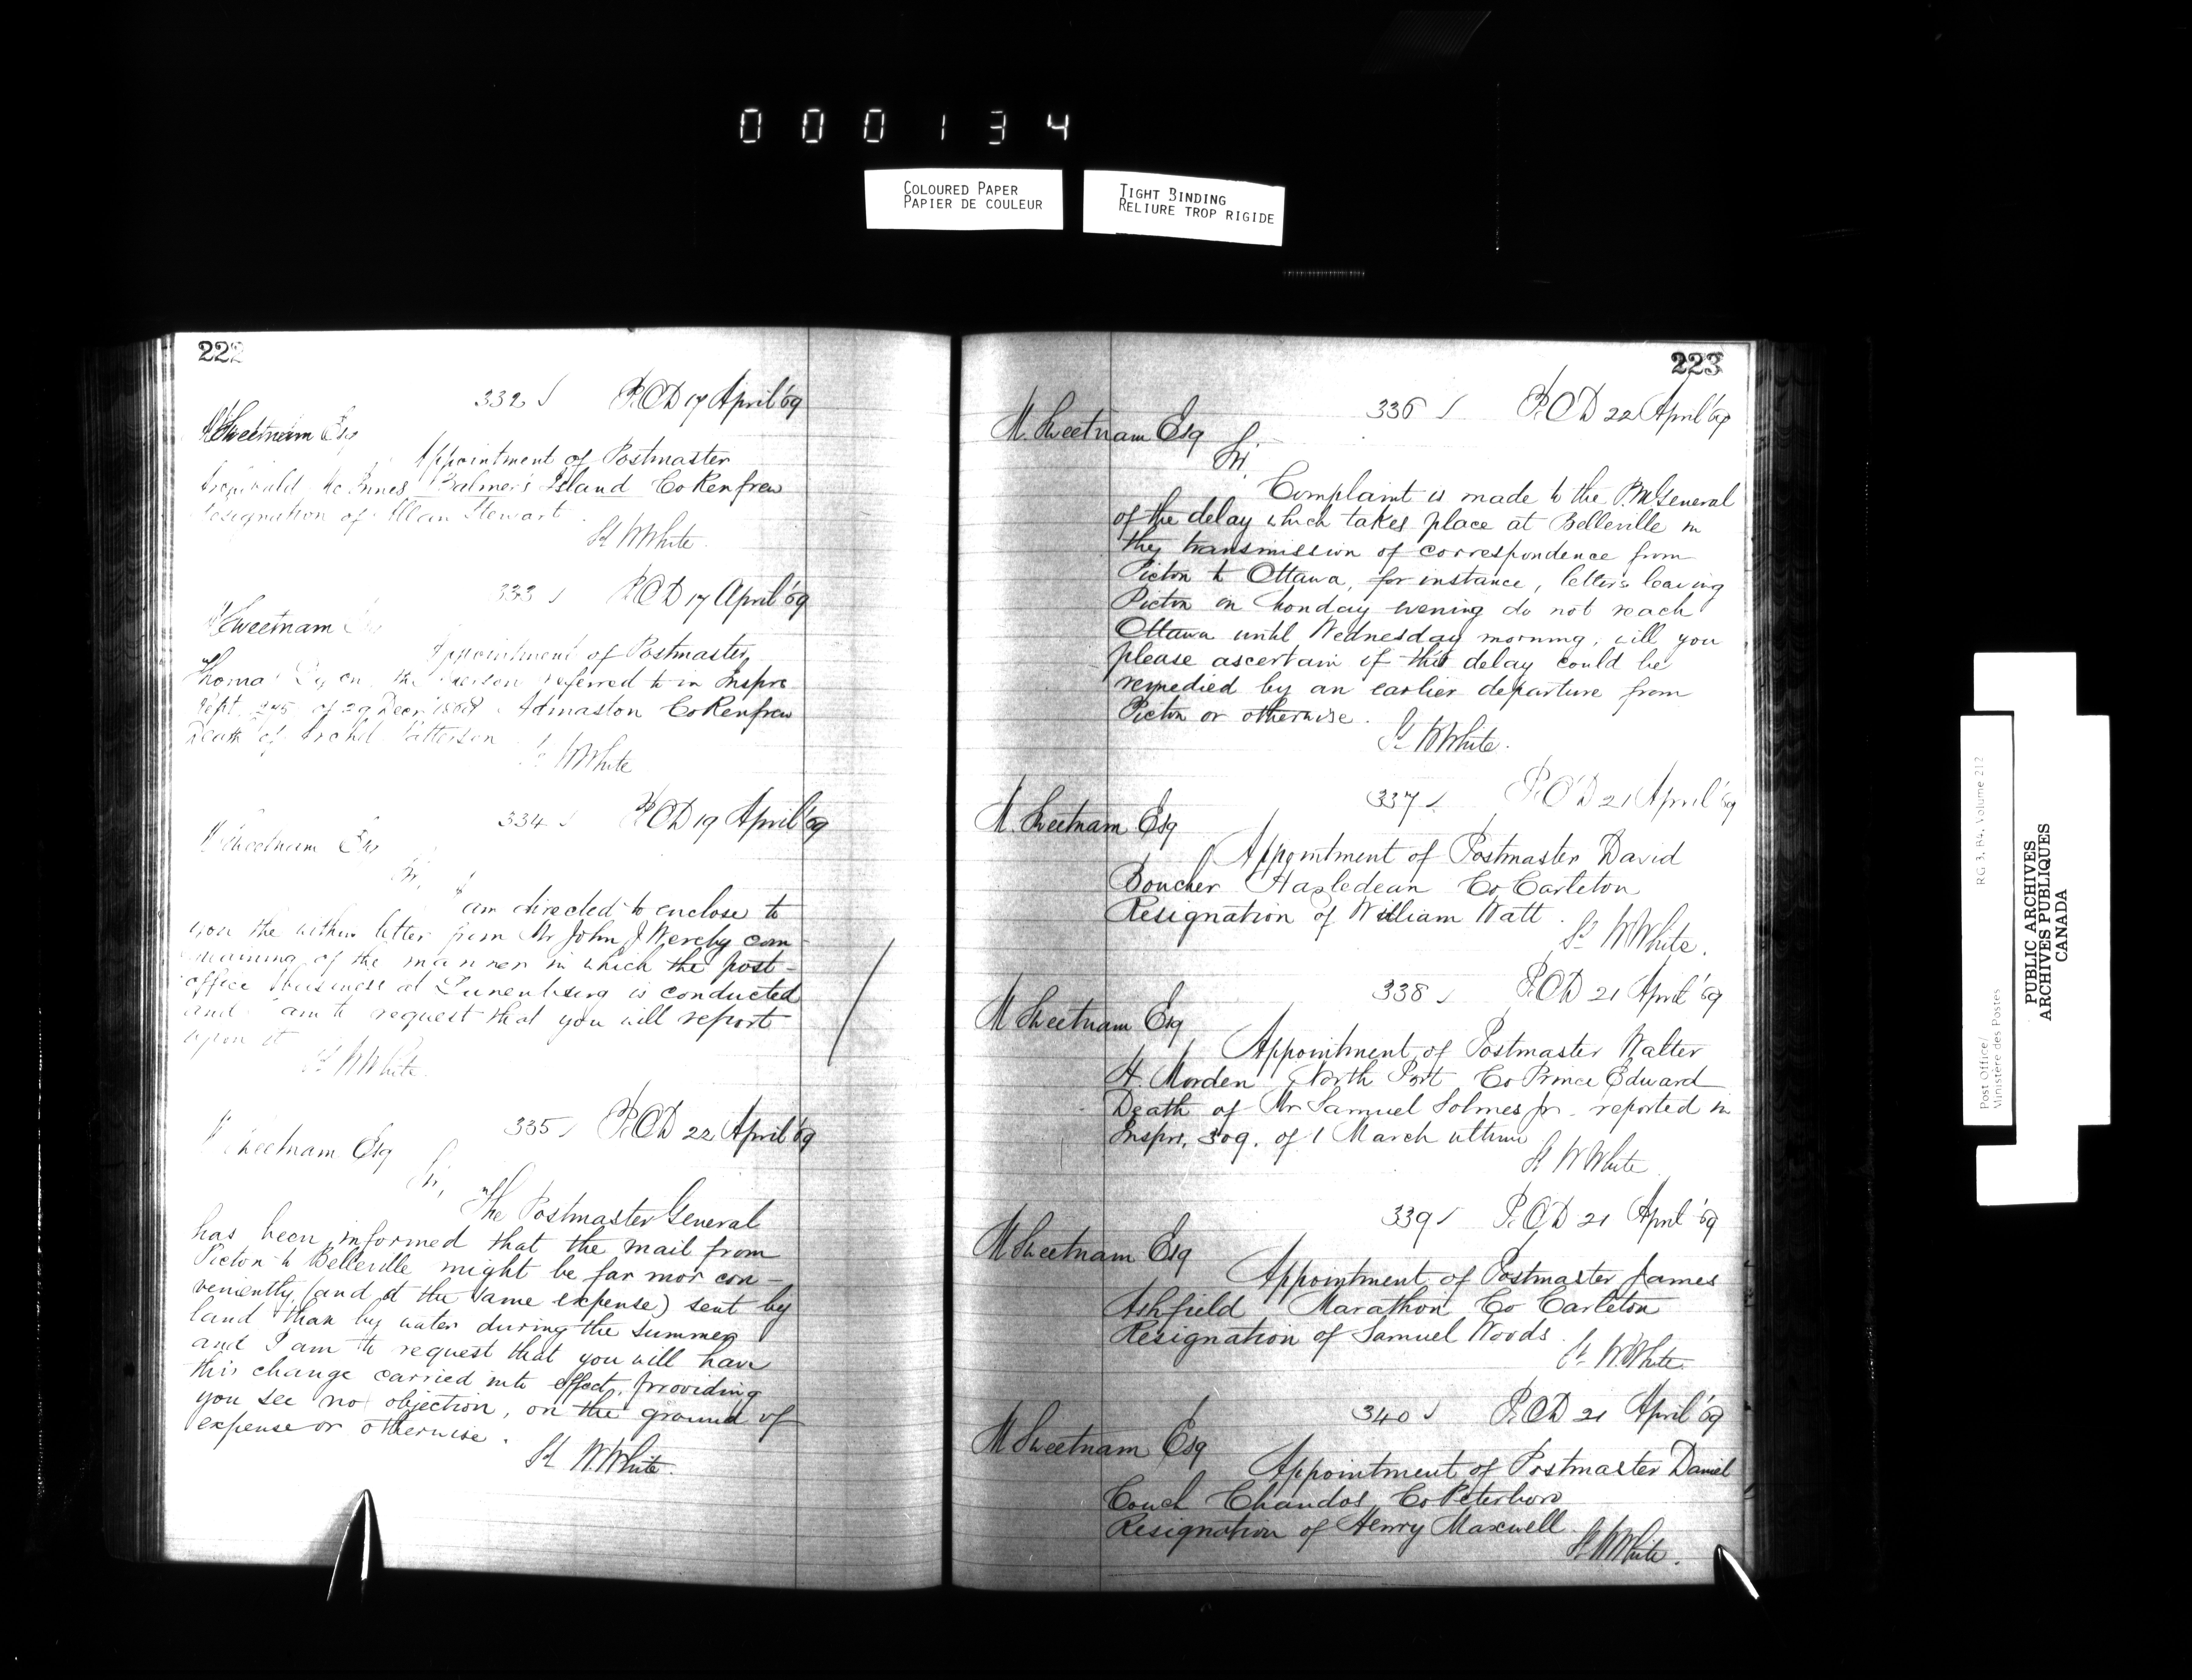 000134
COLOURED PAPER
PAPIER DE COULEUR
TIGHT BINDING
RELIURE TROP RIGIDE
222
332 P.O.D 17 April '69
M Sweetnam Esq
Appointment of Postmaster
Archibald McInnes Palmer's Island Co Renfrew
Resignation of Allan Stewart
Sd W White
333 P.O.D 17 April '69
M Sweetnam Esq
Appointment of Postmaster,
Thomas the person referred to in Insprs
Rept. 245 of 29 Decr 1868 Admaston Co Renfrew
Death of Archd. Patterson
Sd W White
334 P.O.D 19 April '69
M Sweetnam Esq
Sir,
I am directed to enclose to
you the within letter from Mr John J
of the manner in which the post-
office business at Lunenburg is conducted
and I am to request that you will report
upon it
Sd W White
335 P.O.D 22 April '69
M Sweetnam Esq
Sir,
The Postmaster General
has been informed that the mail from
Picton to Belleville might be far mor con-
veniently (and at the same expense) sent by
land than by water during the summer
and I am to request that you will have
this change carried into effect, providing
you see no objection, on the ground of
expense or otherwise.
Sd W. White.
223
336 P.O.D 22 April '69
M. Sweetnam Esq
Sir,
Complaint is made to the P.M. General
of the delay which takes place at Belleville in
the transmission of correspondence from
Picton to Ottawa, for instance, letters leaving
Picton on Monday evening do not reach
Ottawa until Wednesday morning, will you
please ascertain if this delay could be
remedied by an earlier departure from
Picton or otherwise.
Sd W White.
337 P.O.D 21 April '69
M. Sweetnam Esq
Appointment of Postmaster David
Boucher Hazledean Co Carleton
Resignation of William Watt.
Sd W White.
338 P.O.D 21 April '69
M Sweetnam Esq
Appointment of Postmaster Walter
H. Morden North Port Co Prince Edward
Death of Mr Samuel Solmes Jr. reported in
Insprs. 309. of 1 March ultimo
Sd W White
339 P.O.D 21 April '69
M Sweetnam Esq
Appointment of Postmaster James
Ashfield Marathon Co Carleton
Resignation of Samuel Woods.
Sd W. White.
340 P.O.D 21 April '69
M Sweetnam Esq
Appointment of Postmaster Daniel
Couch Chandos Co Peterboro
Resignation of Henry Maxwell.
Sd W White.
Post Office/
Ministère des Postes
RG 3, B4, Volume 212
PUBLIC ARCHIVES
ARCHIVES PUBLIQUES
CANADA